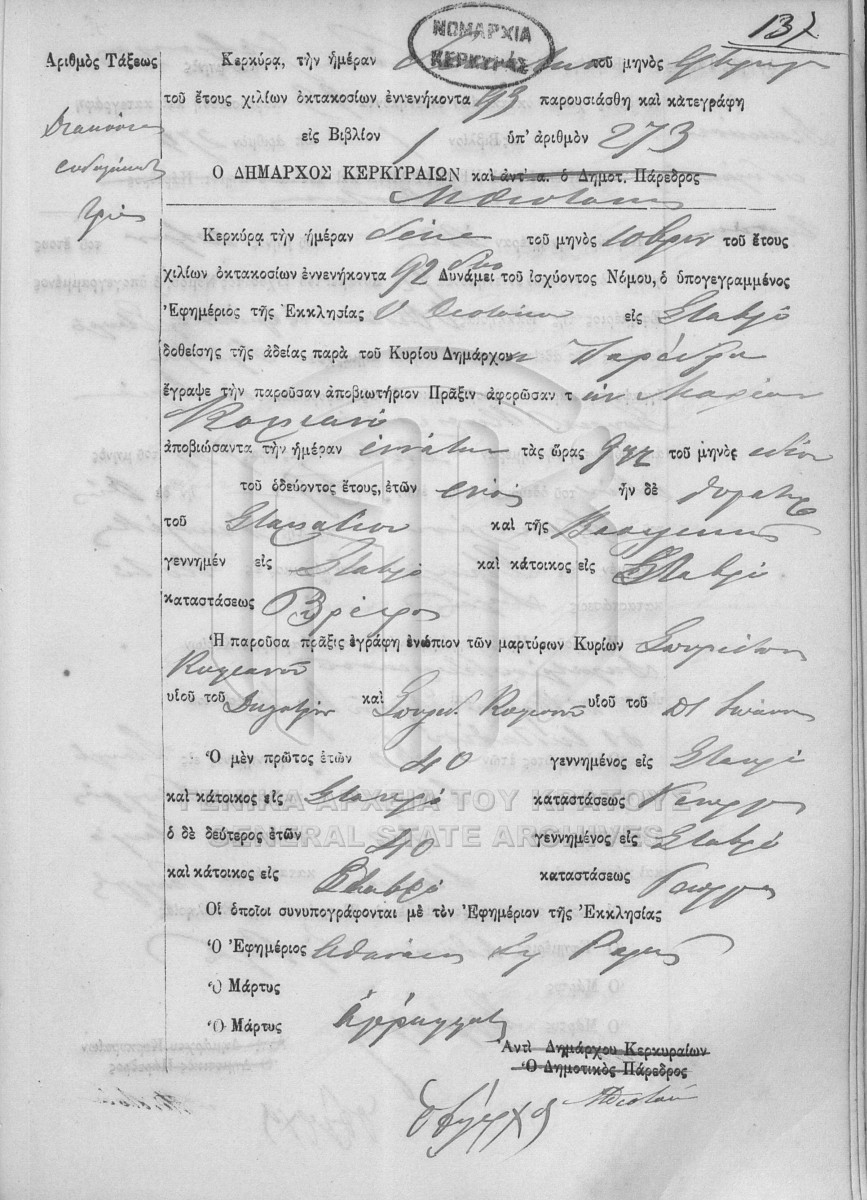 137
ΝΟΜΑΡΧΙΑ
ΚΕΡΚΥΡΑΣ
Ἀριθμὸς Τάξεως
Διακόσια
ἑβδομήκοντα
τρία
Κερκύρᾳ, τὴν ἡμέραν τοῦ μηνὸς
τοῦ ἔτους χιλίων ὀκτακοσίων ἐννενήκοντα 93 παρουσιάσθη καὶ κατεγράφη
εἰς Βιβλίον 1 ὑπ' ἀριθμὸν 273
Ο ΔΗΜΑΡΧΟΣ ΚΕΡΚΥΡΑΙΩΝ καὶ ἀντ' α. ὁ Δημοτ. Πάρεδρος
Μ Θεοτόκης
Κερκύρᾳ τὴν ἡμέραν δέκα τοῦ μηνὸς 10βρίου τοῦ ἔτους
χιλίων ὀκτακοσίων ἐννενήκοντα 92 δύο Δυνάμει τοῦ ἰσχύοντος Νόμου, ὁ ὑπογεγραμμένος
Ἐφημέριος τῆς Ἐκκλησίας Υ Θεοτόκου εἰς Σταβρό
δοθείσης τῆς ἀδείας παρὰ τοῦ Κυρίου Δημάρχου Παρέδρου
ἔγραψε τὴν παροῦσαν ἀποβιωτήριον Πρᾶξιν ἀφορῶσαν τ ὴν Μαρίαν
ἀποβιώσαντα τὴν ἡμέραν ἐννάτην τὰς ὥρας 9 τοῦ μηνὸς ἰδίου
τοῦ ὁδεύοντος ἔτους, ἐτῶν ἑνός ἦν δὲ θυγάτηρ
τοῦ Σταματίου καὶ τῆς Βασιλικῆς
γεννημέν εἰς Σταβρό καὶ κάτοικος εἰς Σταβρό
καταστάσεως Βρέφος
Ἡ παροῦσα πρᾶξις ἐγράφη ἐνώπιον τῶν μαρτύρων Κυρίων Σπυρίδων
υἱοῦ τοῦ Δημητρίου καὶ Σπυρίδ. υἱοῦ τοῦ Ἰωάννου
Ὁ μὲν πρῶτος ἐτῶν 40 γεννημένος εἰς Σταυρό
καὶ κάτοικος εἰς Σταυρό καταστάσεως Γεωργός
ὁ δὲ δεύτερος ἐτῶν 40 γεννημένος εἰς Σταβρό
καὶ κάτοικος εἰς Σταβρό καταστάσεως Γεωργός
Οἱ ὁποῖοι συνυπογράφονται μὲ τὸν Ἐφημέριον τῆς Ἐκκλησίας
Ὁ Ἐφημέριος Ἀθανάσιος
Ὁ Μάρτυς
Ὁ Μάρτυς Ἀγράμματοι
Ἀντὶ Δημάρχου Κερκυραίων
Ὁ Δημοτικὸς Πάρεδρος
Ὁ Δήμαρχος Μ Θεοτόκης
ΓΕΝΙΚΑ ΑΡΧΕΙΑ ΤΟΥ ΚΡΑΤΟΥΣ
GENERAL STATE ARCHIVES